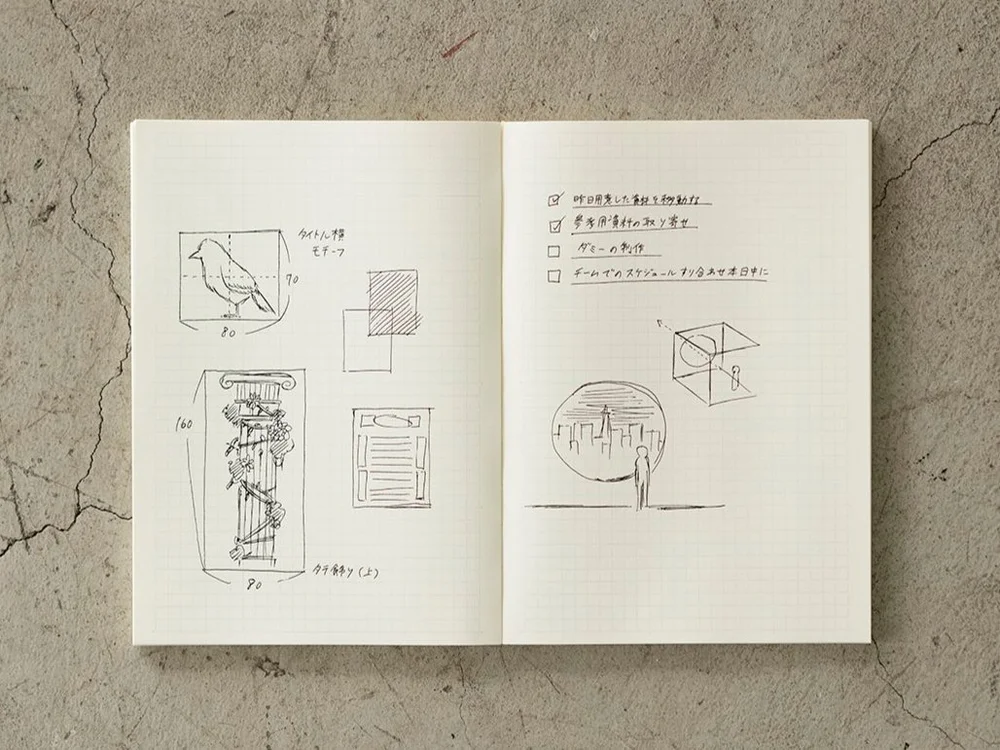 タイトル横
モチーフ
70
80
160
80
タテ飾り(上)
昨日用意した資料を移動する
参考用資料の取り寄せ
ダミーの制作
チームでのスケジュールすり合わせ本日中に